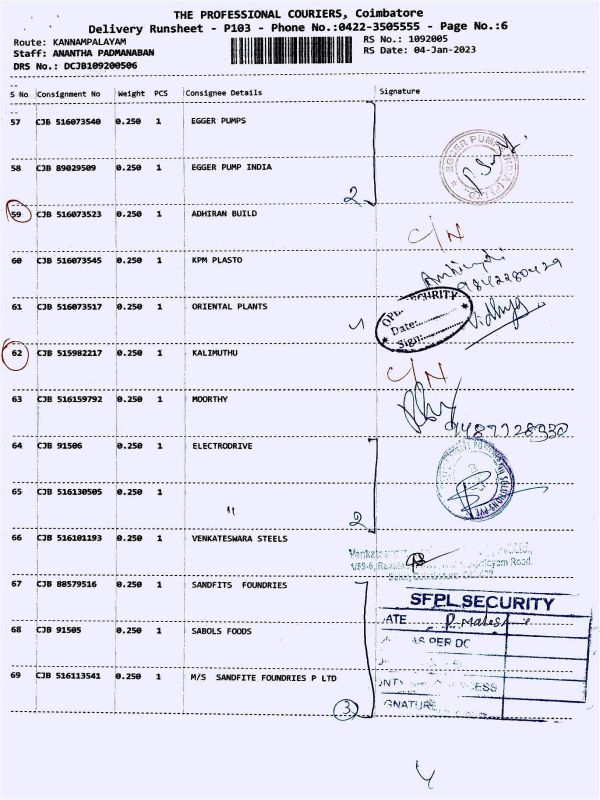 THE PROFESSIONAL COURIERS, Coimbatore
Delivery Runsheet - P103 - Phone No.:0422-3505555 - Page No.:6
Route: KANNAMPALAYAM RS No.: 1092005
Staff: ANANTHA PADMANABAN RS Date: 04-Jan-2023
DRS No.: DCJB109200506
S No. Consignment No Weight PCS Consignee Details Signature
57 CJB 516073540 0.250 1 EGGER PUMPS
58 CJB 89029509 0.250 1 EGGER PUMP INDIA
2
59 CJB 516073523 0.250 1 ADHIRAN BUILD
C/N
60 CJB 516073545 0.250 1 KPM PLASTO
9842280429
61 CJB 516073517 0.250 1 ORIENTAL PLANTS
SECURITY
Date:
Sign:
Vidhya
62 CJB 515982217 0.250 1 KALIMUTHU
C/N
63 CJB 516159792 0.250 1 MOORTHY
64 CJB 91506 0.250 1 ELECTRODRIVE
65 CJB 516130505 0.250 1 "
2
66 CJB 516101193 0.250 1 VENKATESWARA STEELS
67 CJB 88579516 0.250 1 SANDFITS FOUNDRIES
SFPL SECURITY
68 CJB 91505 0.250 1 SABOLS FOODS
AS PER DC
69 CJB 516113541 0.250 1 M/S SANDFITE FOUNDRIES P LTD
3